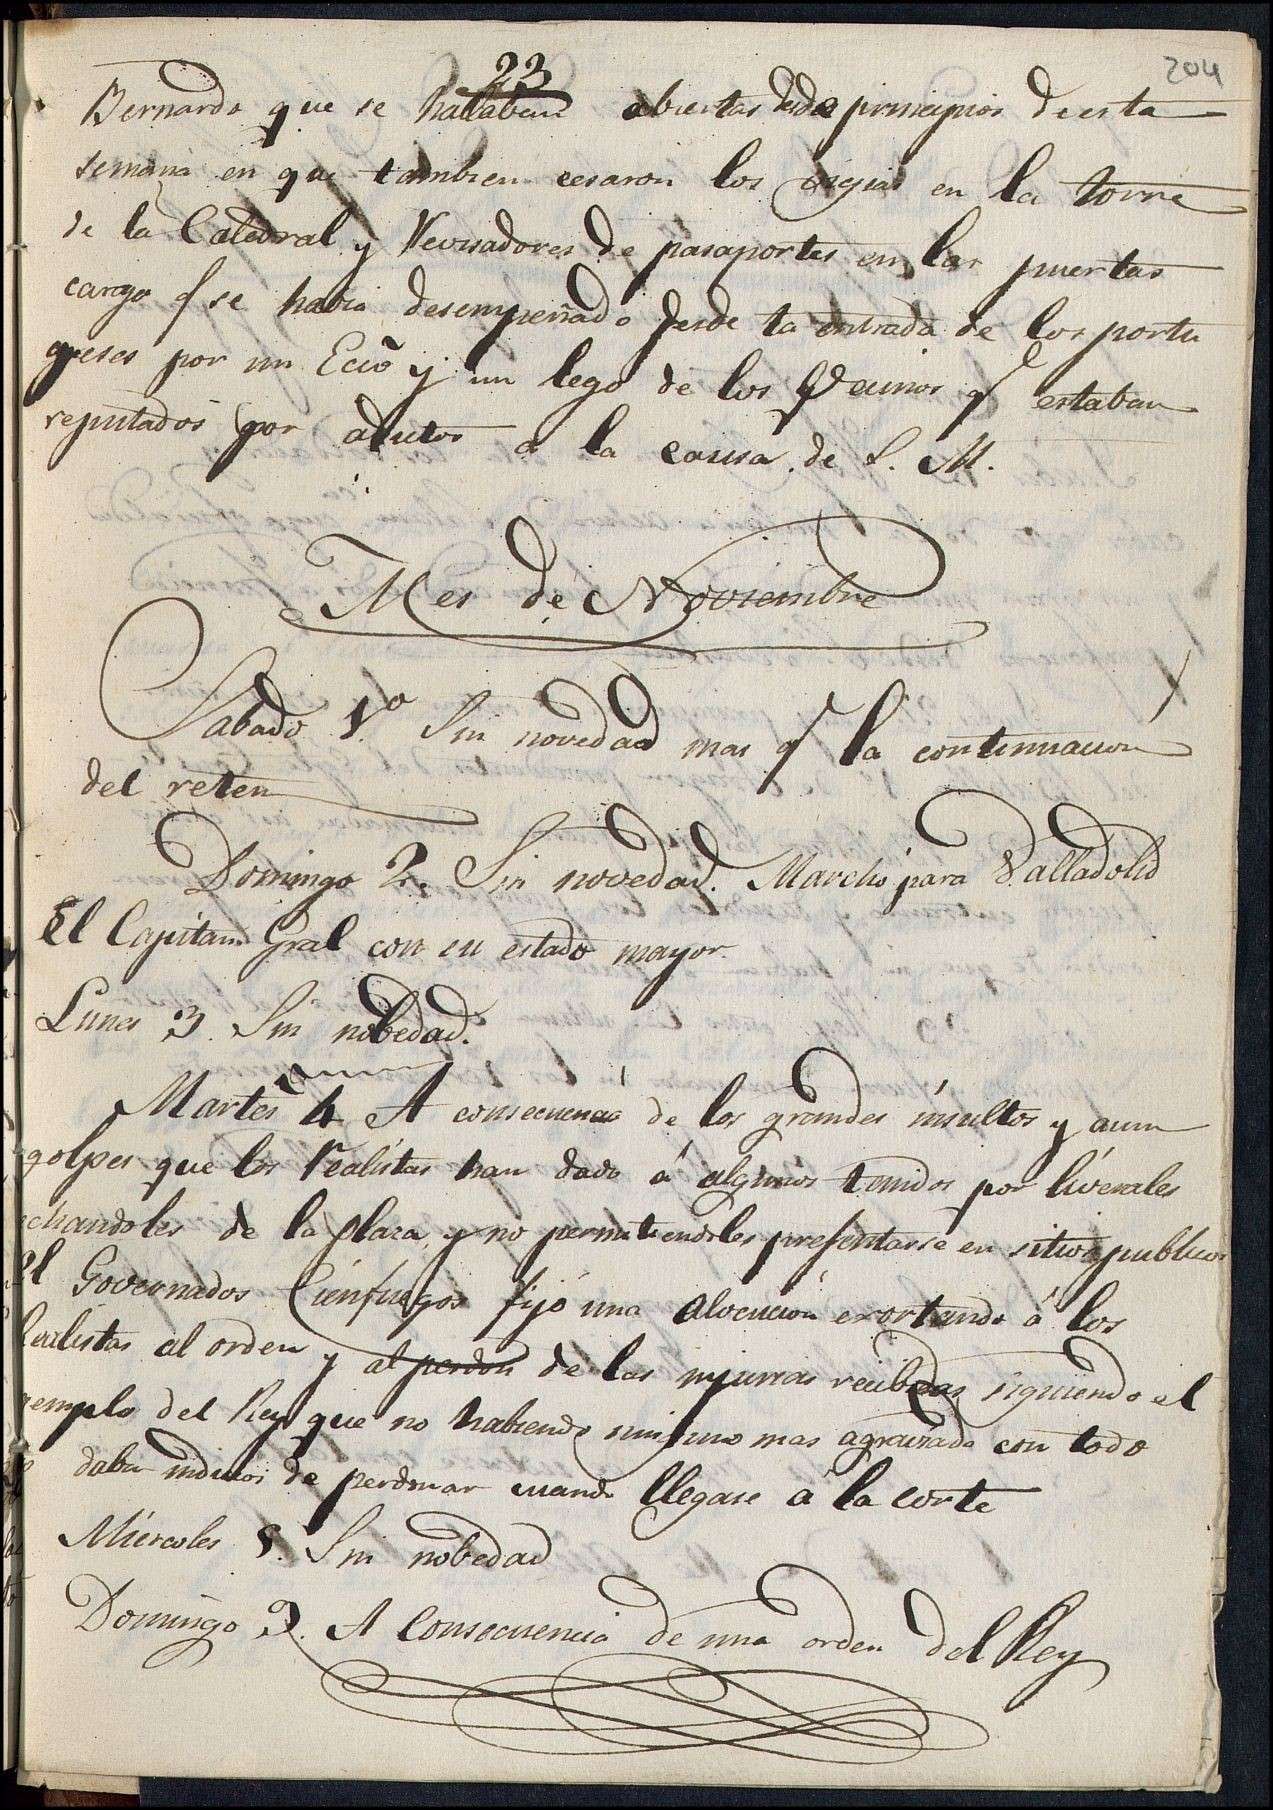 204
23
Bernardo que se hallaban abiertas desde principios de esta
semana en que tambien cesaron los vigias en la torre
de la Catedral y Revisadores de pasaportes en las puertas
cargo q se habia desempeñado desde la entrada de los portu
gueses por un Ecco y un lego de los Vecinos q estaban
reputados por adictos a la causa de S. M.
Mes de Noviembre
Sabado 1.º Sin novedad mas q la continuacion
del reten
Domingo 2. Sin novedad. Marchó para Valladolid
El Capitan Gral con su estado mayor.
Lunes 3. Sin nobedad.
Martes 4 A consecuencia de los grandes insultos y aun
golpes que los realistas han dado á algunos tenidos por liverales
echandoles de la plaza, y no permitiendoles presentarse en sitios publicos
El Governador Cienfuegos fijó una alocucion exortando á los
Realistas al orden y al perdon de las injurias recibidas siguiendo el
egemplo del Rey que no habiendo ninguno mas agraviado con todo
daba indicios de perdonar cuando llegase á la corte
Miercoles 5. Sin nobedad
Domingo 9. A Consecuencia de una orden del Rey